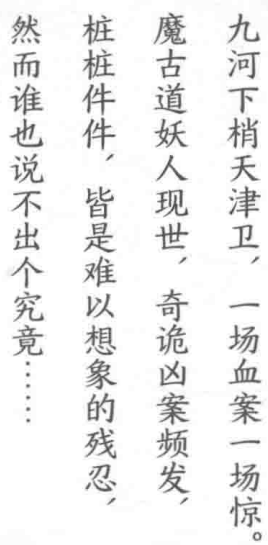 九河下梢天津卫，一场血案一场惊。
魔古道妖人现世，奇诡凶案频发，
桩桩件件，皆是难以想象的残忍，
然而谁也说不出个究竟……